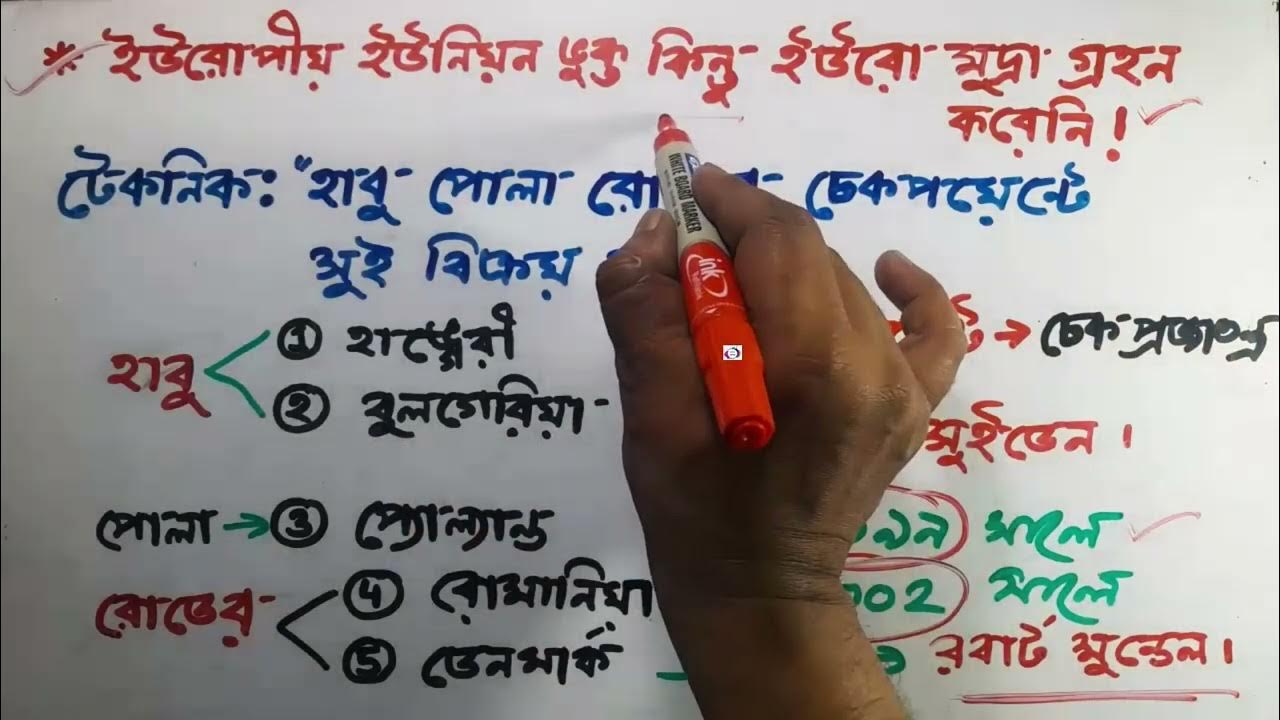 * ইউরোপীয় ইউনিয়ন ভুক্ত কিন্তু ইউরো মুদ্রা গ্রহন
করেনি।
টেকনিক: "হাবু পোলা চেকপয়েন্টে
সুই বিক্রয়
হাবু
① হাঙ্গেরী
② বুলগেরিয়া
→ চেক প্রজাতন্ত্র
সুইডেন।
পোলা → ③ প্যোল্যান্ড
সালে
রোডের
④ রোমানিয়া
০০২ সালে
⑤ ডেনমার্ক
রবার্ট মুন্ডেল।
WHITE BOARD MARKER
ink